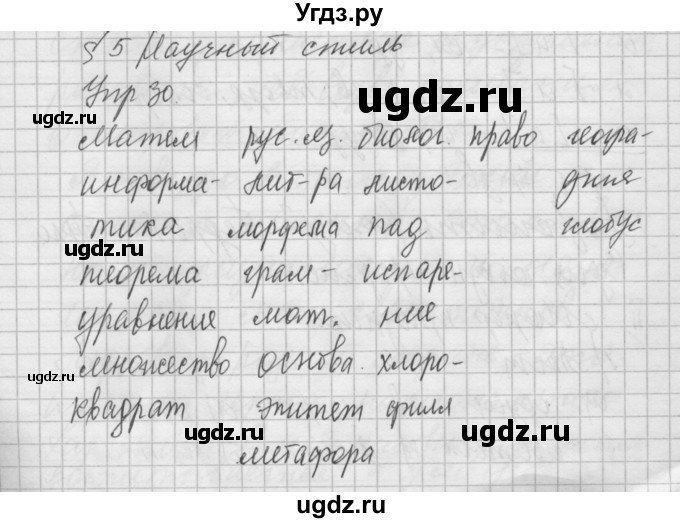 Угдз.ру
§ 5 Научный стиль
Упр 30.
ugdz.ru
ugdz.ru
Матем рус. яз. биолог. право геогра-
информа- лит-ра листо- фия
тика морфема пад глобус
ugdz.ru
теорема грам- испаре-
уравнение мат. ние
множество основа. хлоро-
ugdz.ru
квадрат эпитет филл
ugdz.ru ugdz.ru
метафора
ugdz.ru